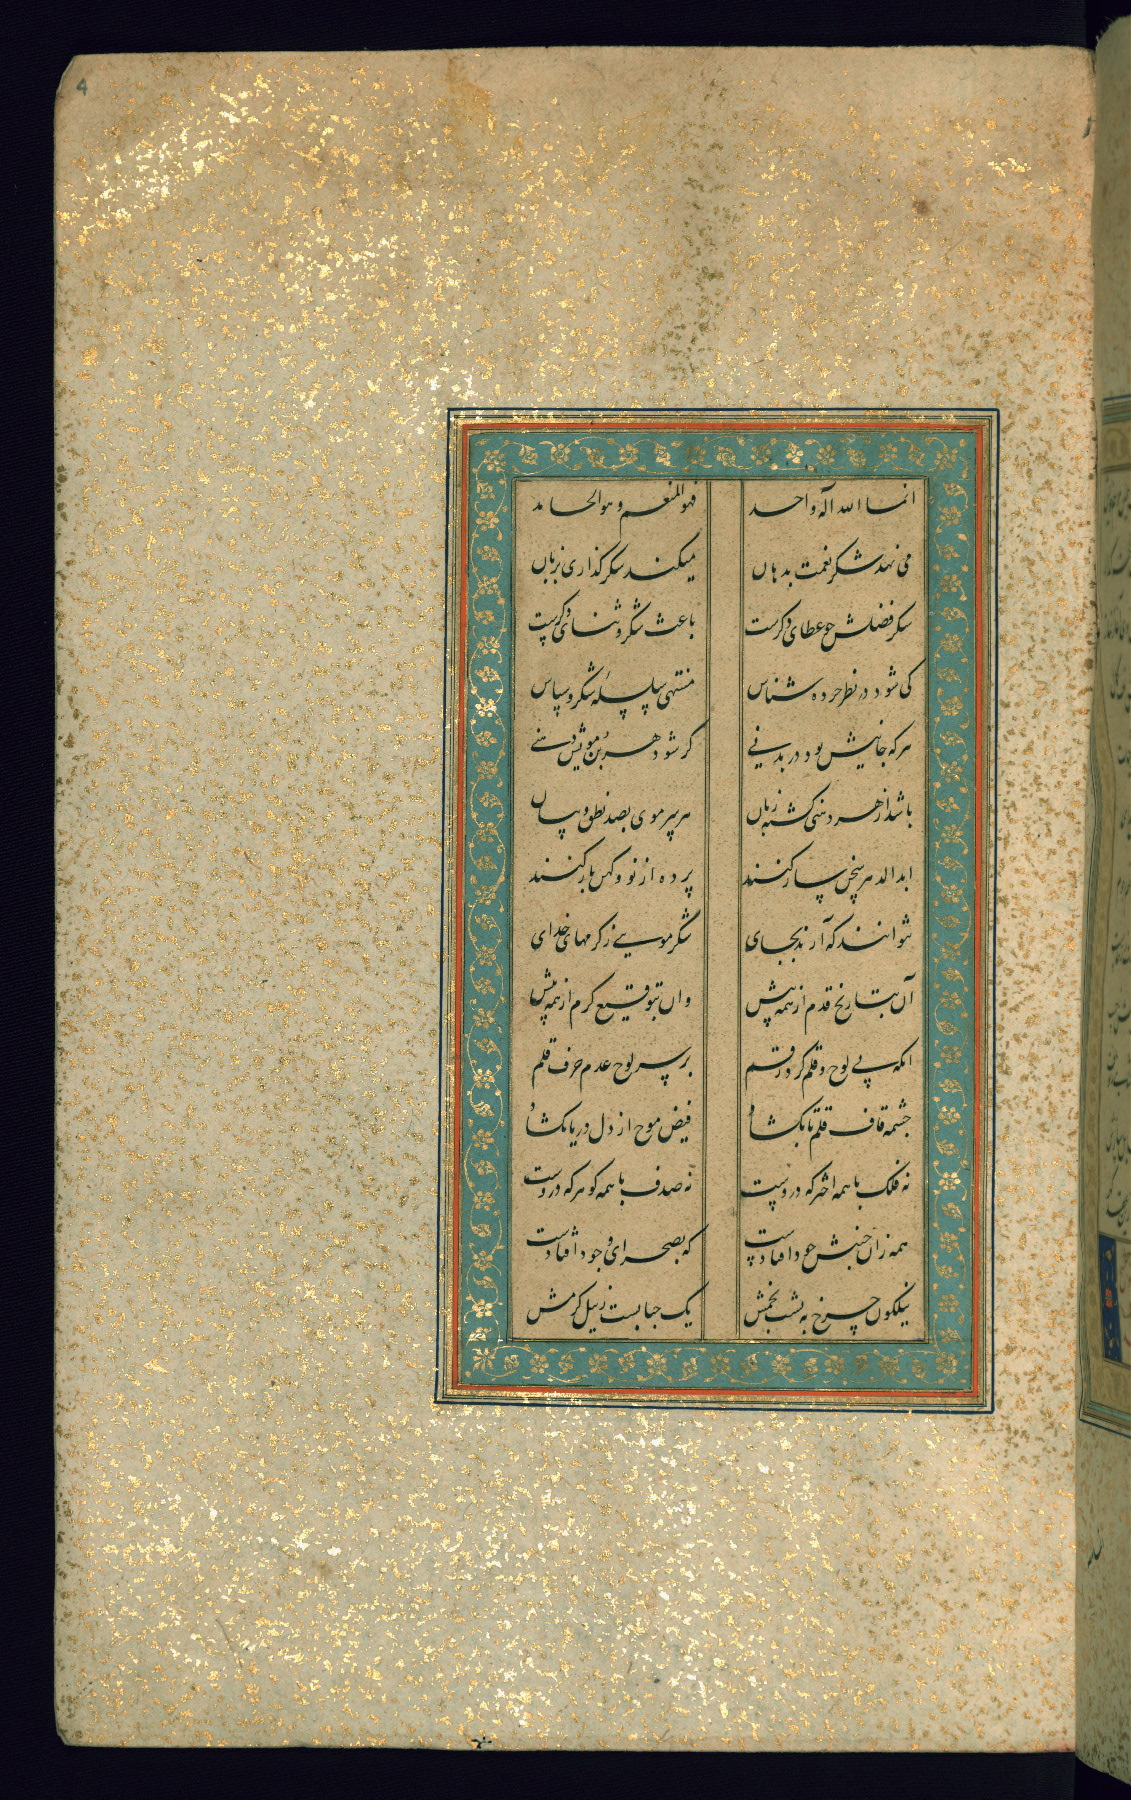 4
انما الله اله واحد فهو المنعم و هو الحامد
می نهد شکر نعمت بدهان میکند شکر گذاری بزبان
شکر فضلش چو عطای دگرست باعث شکر و ثنای دگرست
کی شود در نظر خرده شناس منتهی سلسله شکر و سپاس
هر که جانیش بود در بدنی گر شود هر بن مویش دهنی
باشد از هر دهنی گشته زبان هر سر موی بصد نطق و بیان
ابد الدهر سخن ساز کنند پرده از نو و کهن باز کنند
نتوانند که آرند بجای شکر مویی ز کرمهای خدای
آن بتاریخ قدم از همه پیش وان بتوقیع کرم از همه بیش
انکه بی لوح و قلم کرد رقم بر سر لوح عدم حرف قلم
چشمه قاف قلم تا بگشاد فیض موج از دل دریا بگشاد
نه فلک با همه اختر که دروست نه صدف با همه گوهر که دروست
همه زان جنبش جود افتادست که بصحرای وجود افتادست
نیلگون چرخ به پشت بخمش یک حبابست ز نیل کرمش